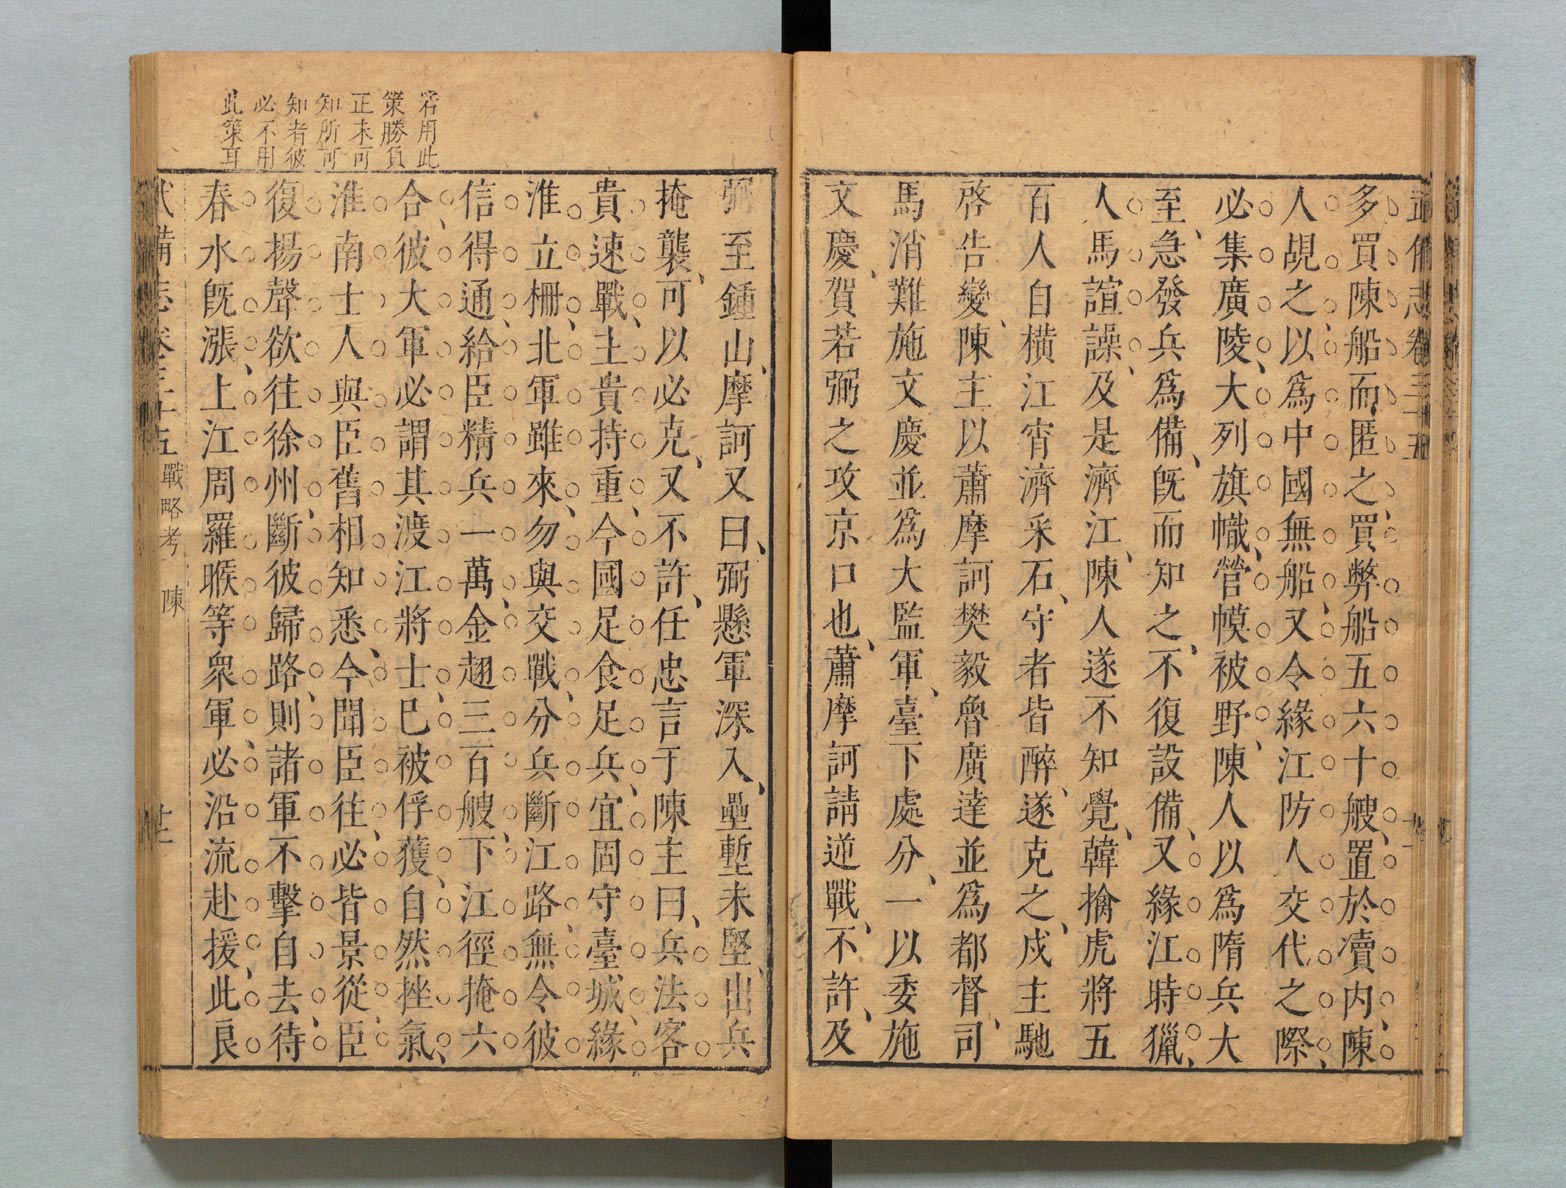 武備志卷三十五
多買陳船而匿之、買弊船五六十艘、置於瀆内、陳
人覘之、以爲中國無船、又令緣江防人交代之際、
必集廣陵、大列旗幟、營幙被野、陳人以爲隋兵大
至、急發兵爲備、旣而知之、不復設備、又緣江時獵、
人馬諠譟、及是濟江、陳人遂不知覺、韓擒虎將五
百人自橫江宵濟采石、守者皆醉、遂克之、戍主馳
啓告變、陳主以蕭摩訶樊毅魯廣達並爲都督、司
馬消難施文慶並爲大監軍、臺下處分、一以委施
文慶、賀若弼之攻京口也、蕭摩訶請逆戰、不許、及
弼至鍾山、摩訶又曰、弼懸軍深入、壘塹未堅、出兵
掩襲、可以必克、又不許、任忠言于陳主曰、兵法客
貴速戰、主貴持重、今國足食足兵、宜固守臺城、緣
淮立柵、北軍雖來、勿與交戰、分兵斷江路、無令彼
信得通、給臣精兵一萬、金翅三百艘、下江徑掩六
合、彼大軍必謂其渡江將士、已被俘獲、自然挫氣、
淮南士人與臣舊相知悉、今聞臣往、必皆景從、臣
復揚聲欲往徐州、斷彼歸路、則諸軍不擊自去、待
春水旣漲、上江周羅睺等衆軍、必沿流赴援、此良
若用此
策勝負
正未可
知所可
知者彼
必不用
此策耳
武備志卷三十五 戰略考 陳